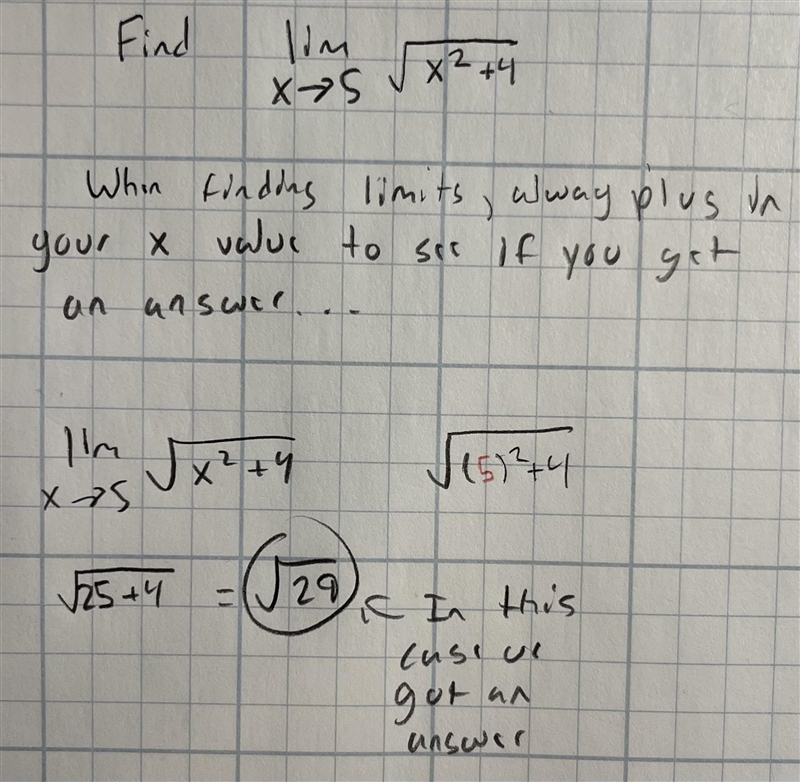 Find lim x→5 √(x² + 4)
When finding limits, alway plug in
your x value to see if you get
an answer...
lim x→5 √(x² + 4) √((5)² + 4)
√(25 + 4) = √29 ← In this
case we
got an
answer